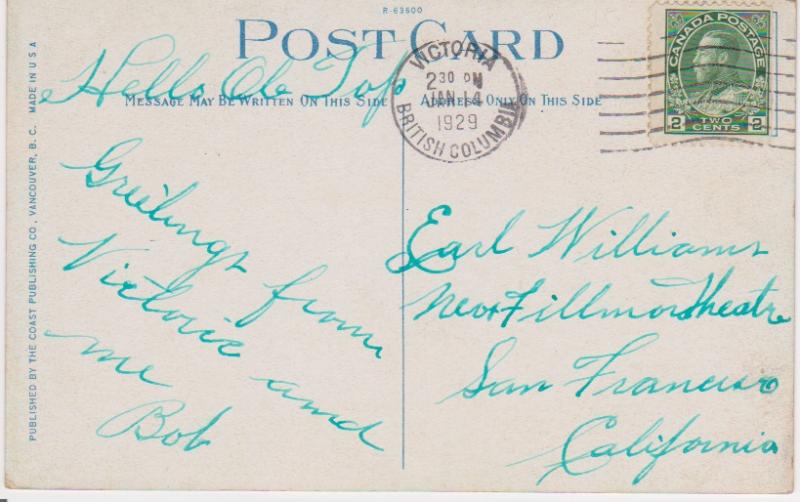 R-63600
POST CARD
MESSAGE MAY BE WRITTEN ON THIS SIDE
ADDRESS ONLY ON THIS SIDE
PUBLISHED BY THE COAST PUBLISHING CO., VANCOUVER, B. C. MADE IN U S A
VICTORIA
2 30 PM
JAN 14
1929
BRITISH COLUMBIA
CANADA POSTAGE
2 TWO CENTS 2
Hello Ole Top
Greetings from
Victoria and
me
Bob
Earl Williams
New Fillmore Theatre
San Francisco
California